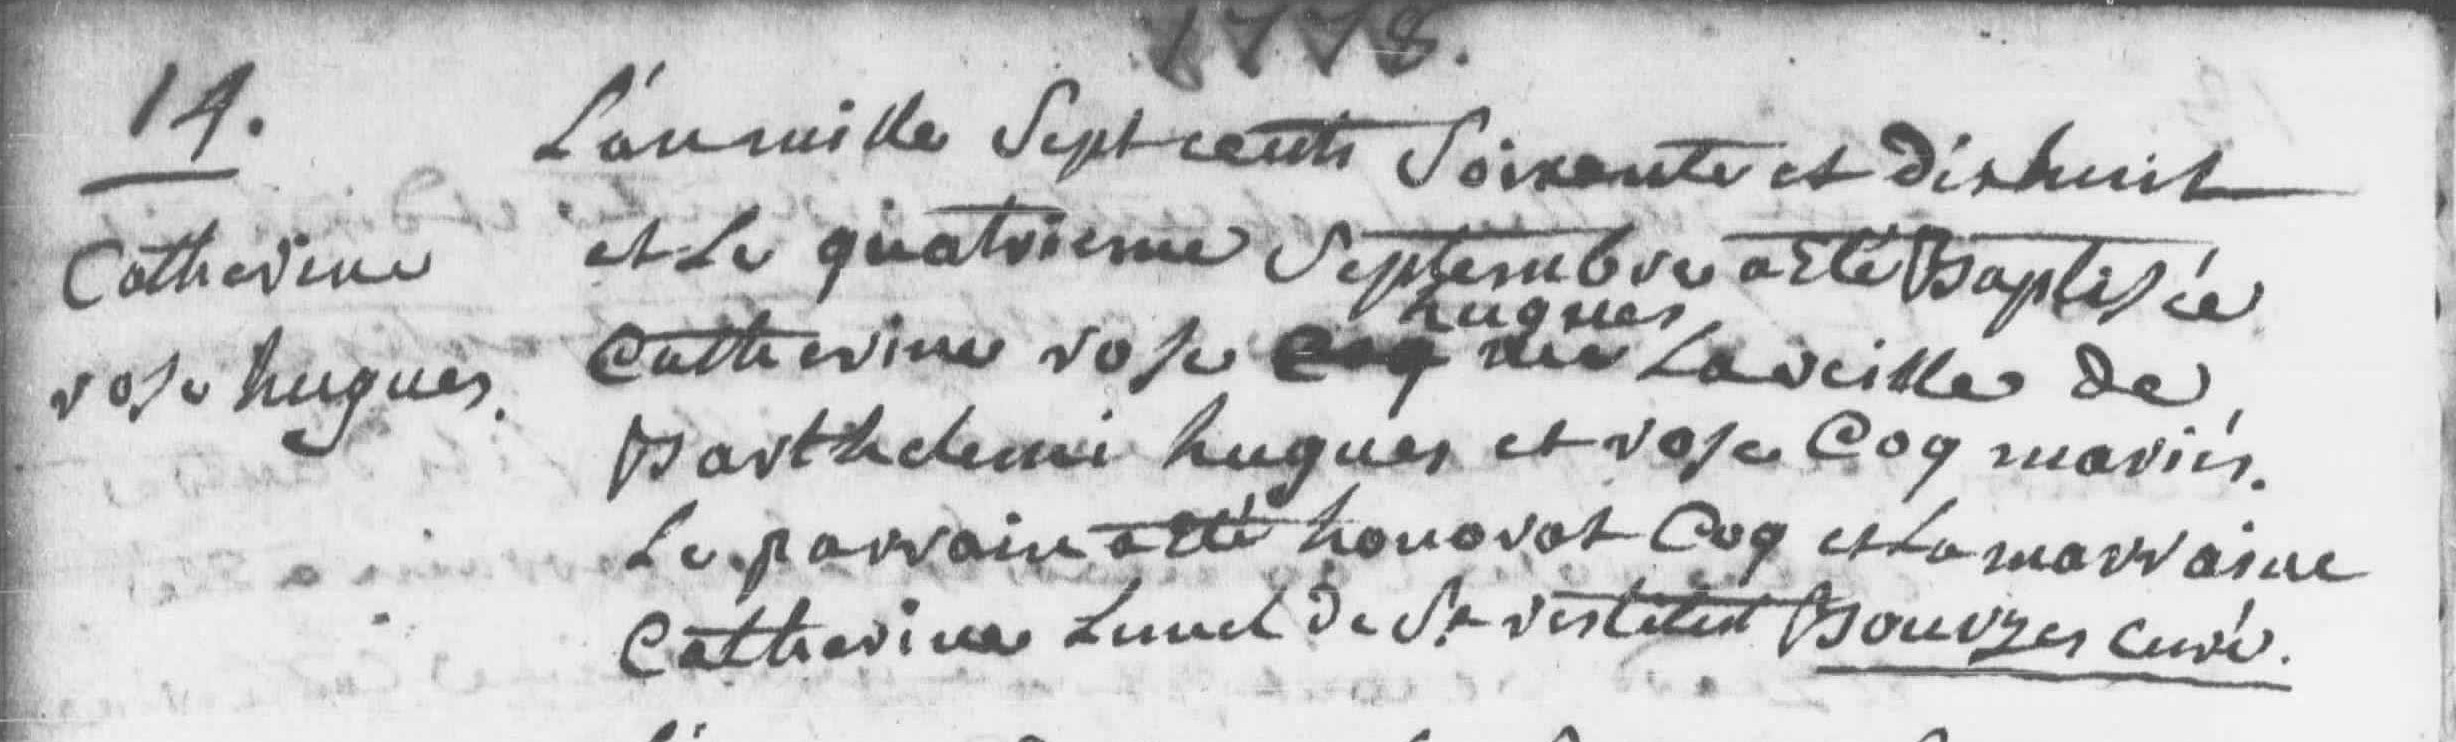 1778.
14.
Catherine
rose hugues.
L'an mille Sept cents Soixante et dixhuit
et le quatrieme Septembre a eté Baptisée
hugues
Catherine rose Coq née La veille de
Barthelemi hugues et rose Coq mariés.
Le parrain a eté honorat Coq et La marraine
Catherine Lunel de St restitut Bourzes curé.